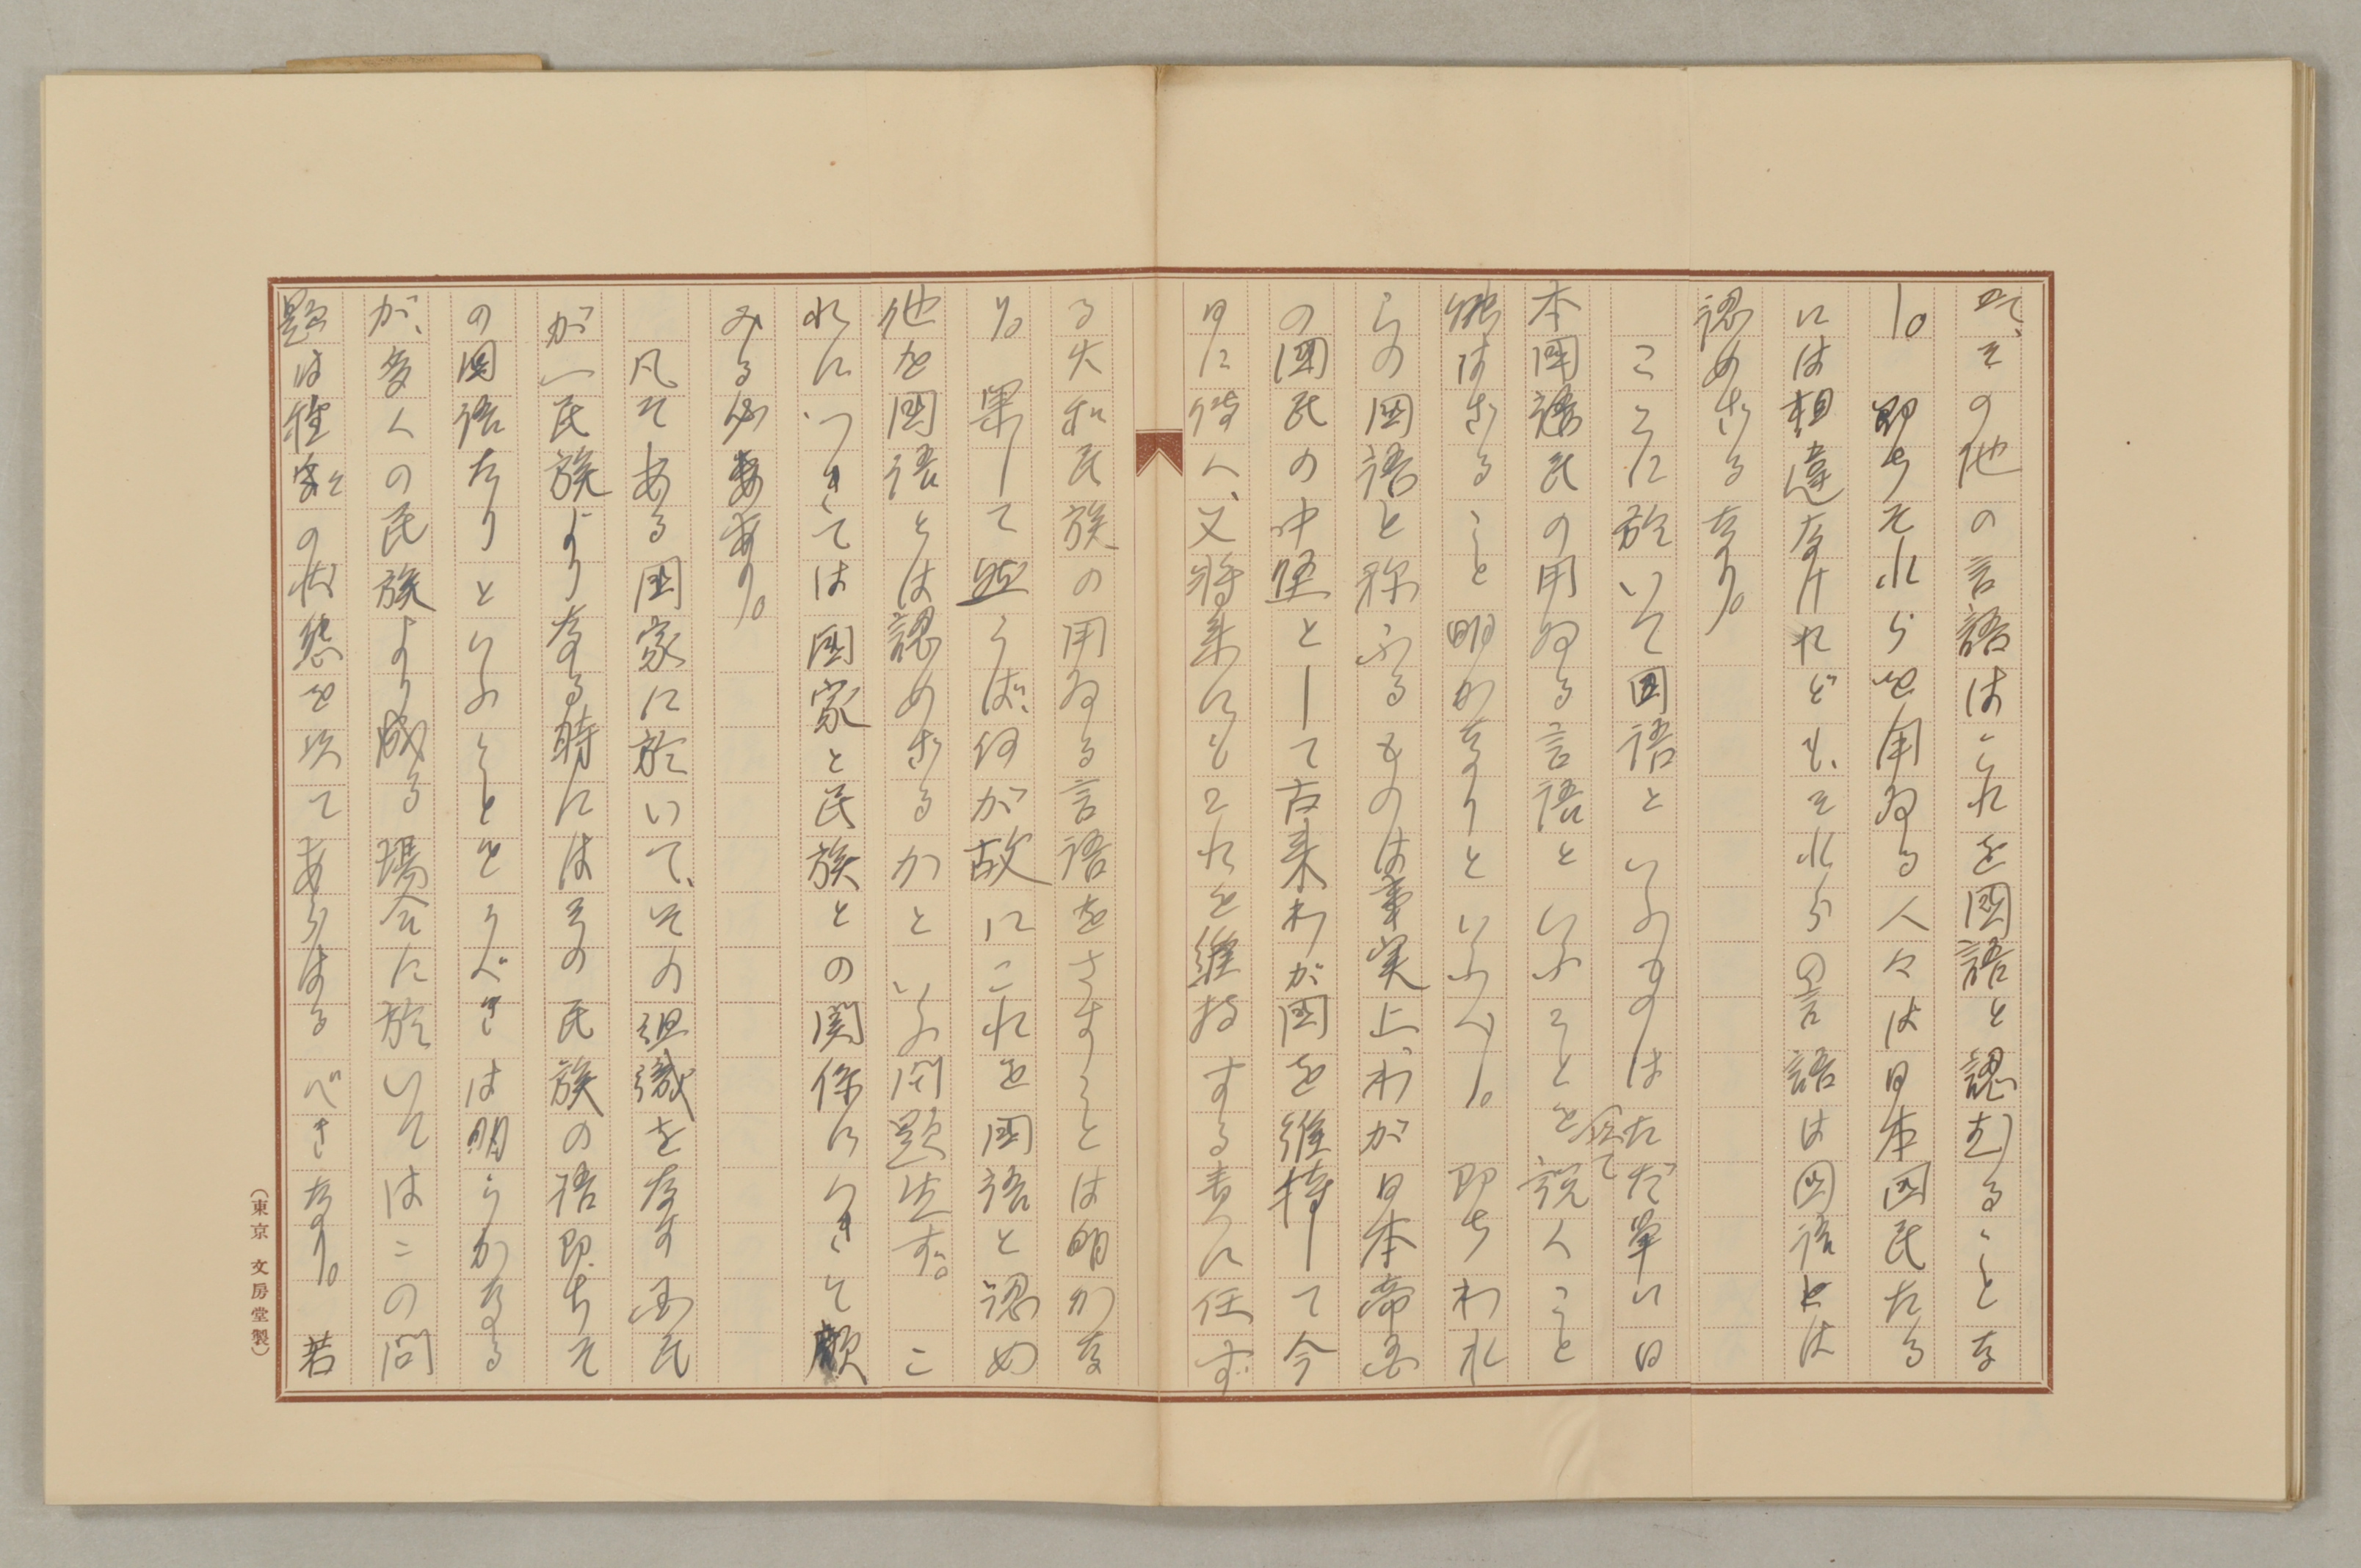 て、その他の言語はこれを國語と認むることな
し。即ちそれらを用ゐる人々は日本国民たる
には相違なけれども、それらの言語は国語とは
認めざるなり。
こゝに於いて国語といふものはたゞ単に日
本國民の用ゐる言語といふことを以て説くこと
能はざること明かなりといふべし。即ちわれ
らの国語と称ふるものは事実上わが日本帝国
の國民の中堅として古来わが国を維持して今
日に傳へ、又将来にもこれを維持する責に任ず
る大和民族の用ゐる言語をさすことは明かな
り。果して然らば、何が故にこれを國語と認め
他を国語とは認めざるかといふ問題生ず。こ
れにつきては国家と民族との関係につきて顧
みる必要あり。
凡そある国家に於いて、その組織をなす国民
が一民族よりなる時にはその民族の語即ちそ
の国語たりといふことをうべきは明らかなる
が、多くの民族より成る場合に於いてはこの問
題は種々の状態を以てあらはるべきなり。若
(東京 文房堂製)